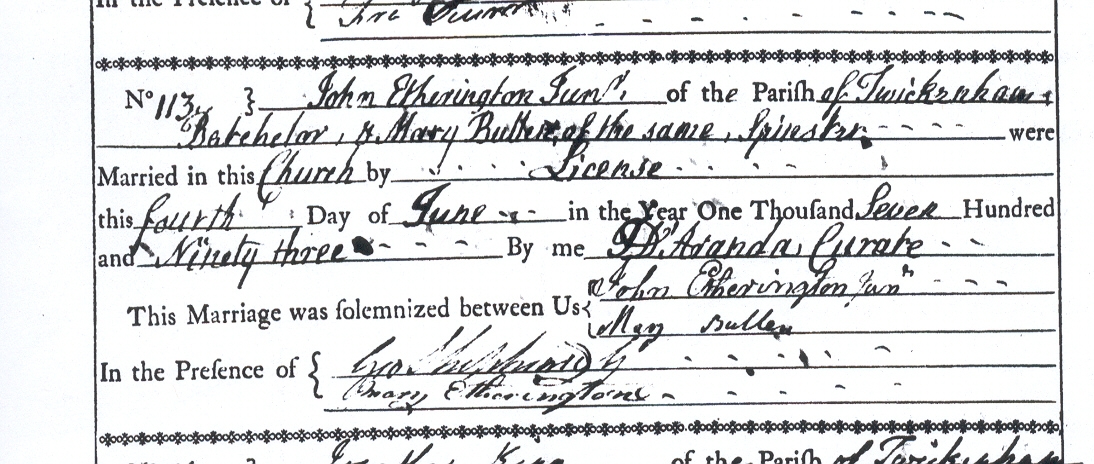 In the Presence of {
No 113 } John Etherington Junr. of the Pariſh of Twickenham
Batchelor, & Mary Butler of the same, Spinster were
Married in this Church by License
this fourth Day of June in the Year One Thouſand Seven Hundred
and Ninety three By me P D'Aranda, Curate
This Marriage was ſolemnized between Us { John Etherington Junr
Mary Bullen
In the Preſence of { Geo
Mary Etherington
of the Pariſh of Twickenham